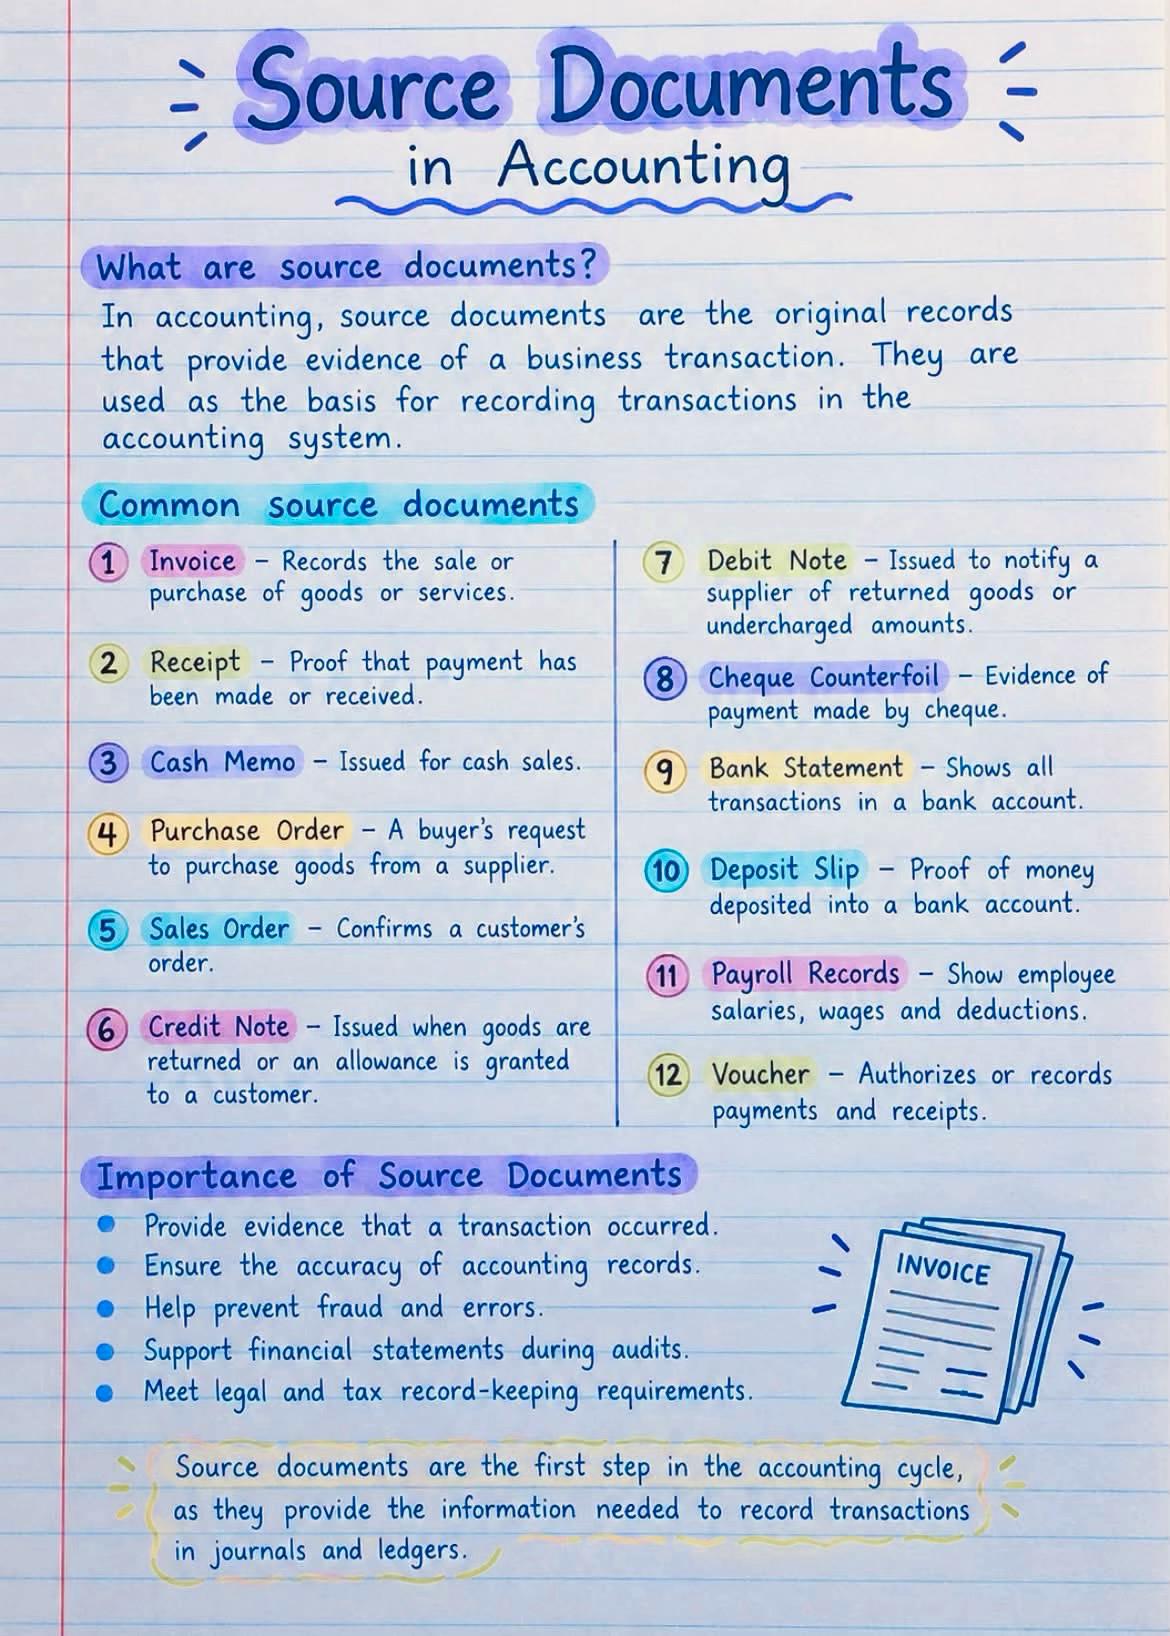 Source Documents
in Accounting
What are source documents?
In accounting, source documents are the original records
that provide evidence of a business transaction. They are
used as the basis for recording transactions in the
accounting system.
Common source documents
1 Invoice – Records the sale or
purchase of goods or services.
2 Receipt – Proof that payment has
been made or received.
3 Cash Memo – Issued for cash sales.
4 Purchase Order – A buyer's request
to purchase goods from a supplier.
5 Sales Order – Confirms a customer's
order.
6 Credit Note – Issued when goods are
returned or an allowance is granted
to a customer.
7 Debit Note – Issued to notify a
supplier of returned goods or
undercharged amounts.
8 Cheque Counterfoil – Evidence of
payment made by cheque.
9 Bank Statement – Shows all
transactions in a bank account.
10 Deposit Slip – Proof of money
deposited into a bank account.
11 Payroll Records – Show employee
salaries, wages and deductions.
12 Voucher – Authorizes or records
payments and receipts.
Importance of Source Documents
• Provide evidence that a transaction occurred.
• Ensure the accuracy of accounting records.
• Help prevent fraud and errors.
• Support financial statements during audits.
• Meet legal and tax record-keeping requirements.
INVOICE
Source documents are the first step in the accounting cycle,
as they provide the information needed to record transactions
in journals and ledgers.